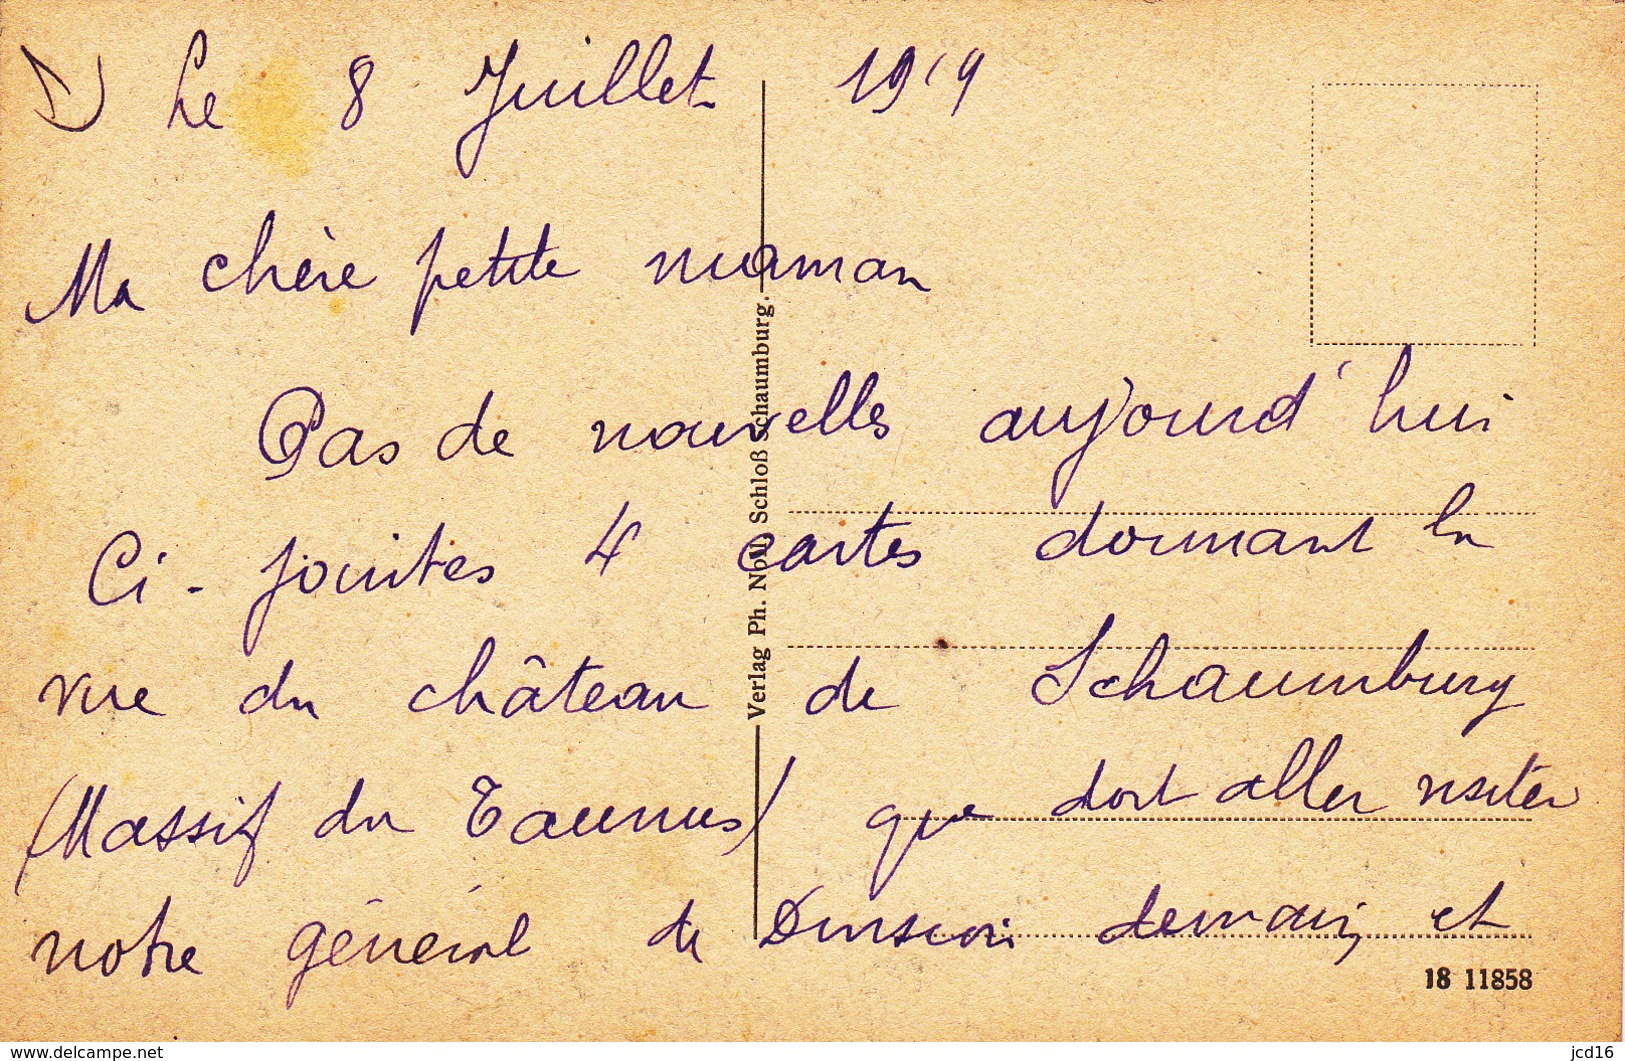 Le 8 Juillet 1919
Ma chère petite maman
Pas de nouvelles aujourd'hui
Ci-jointes 4 cartes donnant la
vue du château de Schaumburg
(Massif du Taunus) que doit aller visiter
notre général de Division demain, et
Verlag Ph. Noll, Schloß Schaumburg.
18 11858
www.delcampe.net
jcd16